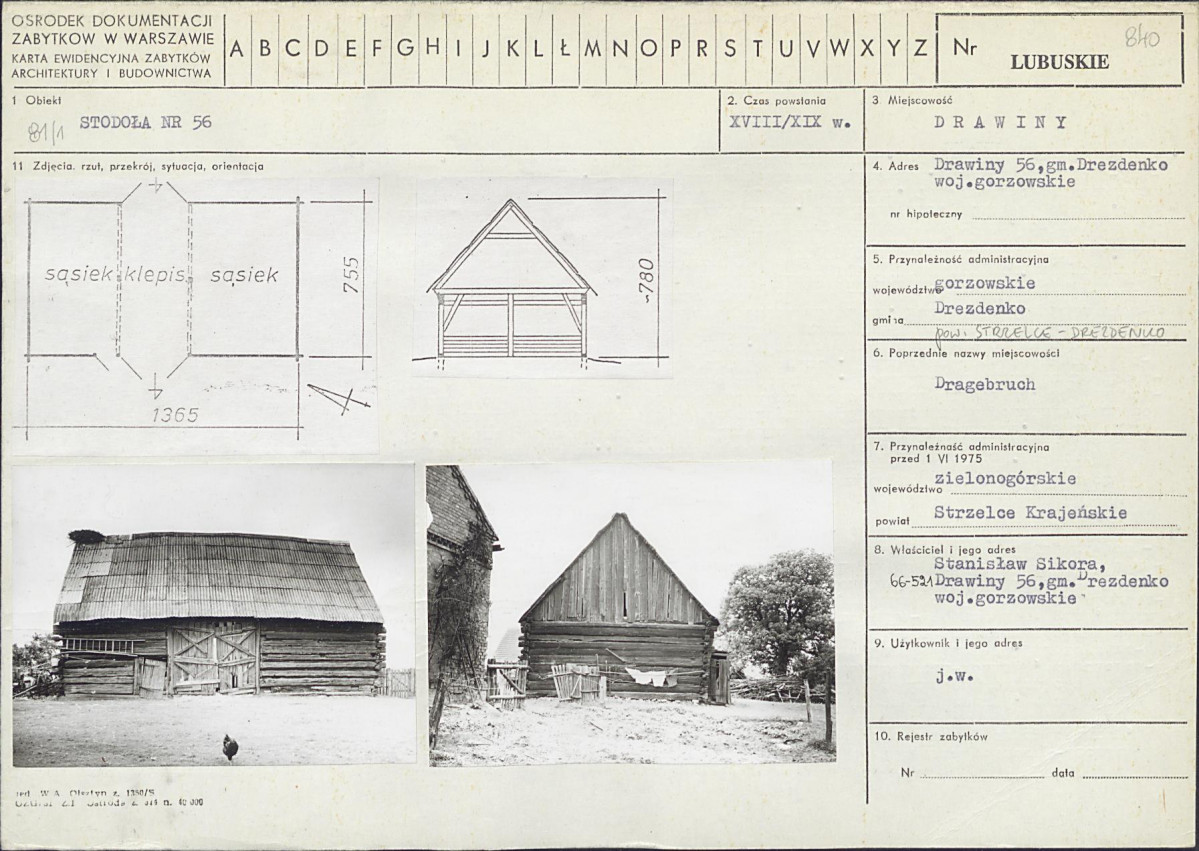 OSRODEK DOKUMENTACJI
ZABYTKOW W WARSZAWIE
KARTA EWIDENCYJNA ZABYTKÓW
ARCHITEKTURY I BUDOWNICTWA
A B C D E F G H I J K L Ł M N O P R S T U V W X Y Z
Nr
840
LUBUSKIE
1 Obiekt
81/1 STODOŁA NR 56
2. Czas powstania
XVIII/XIX w.
3 Miejscowość
DRAWINY
11 Zdjęcia. rzut, przekrój, sytuacja, orientacja
sąsiek klepis. sąsiek
755
1365
~780
4. Adres Drawiny 56,gm.Drezdenko
woj.gorzowskie
nr hipoteczny
5. Przynależność administracyjna
województwo gorzowskie
gmina Drezdenko
pow. STRZELCE - DREZDENKO
6. Poprzednie nazwy miejscowości
Dragebruch
7. Przynależność administracyjna
przed 1 VI 1975
województwo zielonogórskie
powiat Strzelce Krajeńskie
8. Właściciel i jego adres
Stanisław Sikora,
66-521 Drawiny 56,gm.Drezdenko
woj.gorzowskie
9. Użytkownik i jego adres
j.w.
10. Rejestr zabytków
Nr data
W.A. Olsztyn z. 1380/S